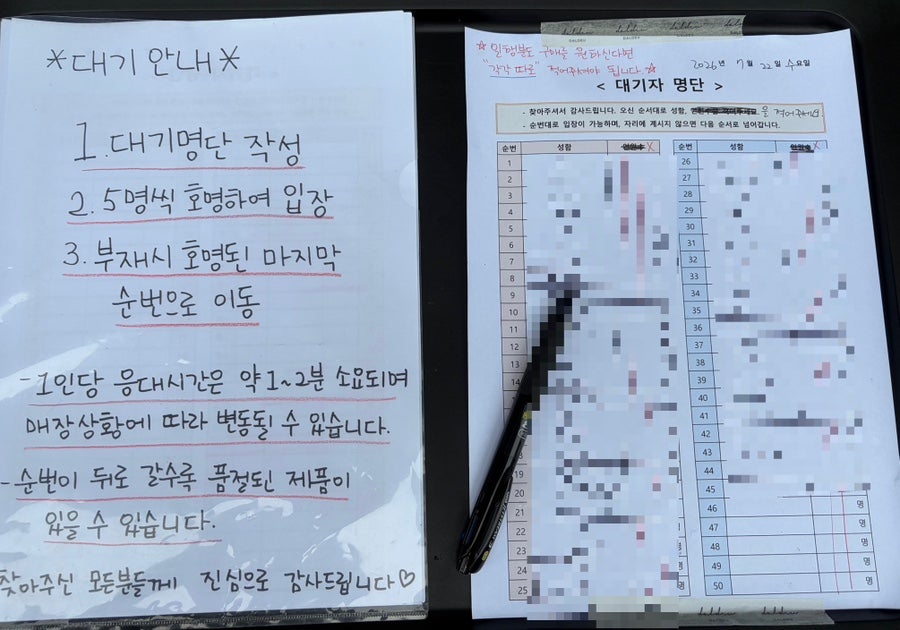 *대기 안내*
1. 대기명단 작성
2. 5명씩 호명하여 입장
3. 부재시 호명된 마지막
순번으로 이동
- 1인당 응대시간은 약 1~2분 소요되며
매장상황에 따라 변동될 수 있습니다.
- 순번이 뒤로 갈수록 품절된 제품이
있을 수 있습니다.
찾아주신 모든분들께 진심으로 감사드립니다♡
☆ 일행분도 구매를 원하신다면
"각각 따로" 적어주셔야 됩니다.☆
2026년 7월 22일 수요일
< 대기자 명단 >
- 찾아주셔서 감사드립니다. 오신 순서대로 성함, 을 적어주세요
- 순번대로 입장이 가능하며, 자리에 계시지 않으면 다음 순서로 넘어갑니다.
순번 성함 X 순번 성함 X
1 26
2 27
3 28
4 29
5 30
6 31
7 32
8 33
9 34
10 35
11 36
12 37
13 38
14 39
40
41
42
43
44
19 45
20 46 명
21 47 명
22 48 명
23 49 명
24 50 명
25